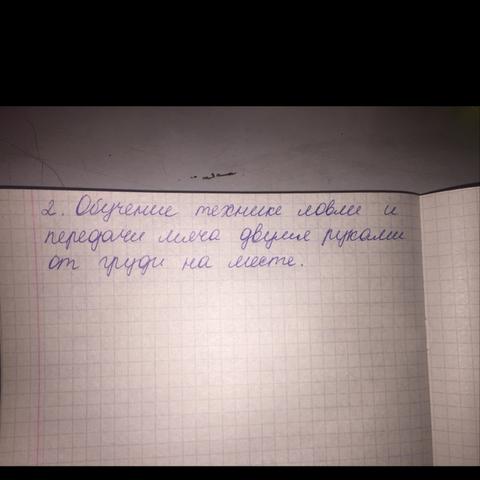 2. Обучение технике ловли и
передачи мяча двумя руками
от груди на месте.